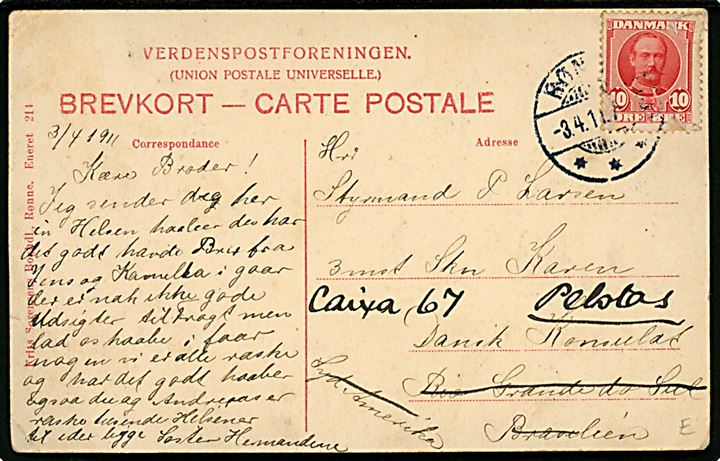 VERDENSPOSTFORENINGEN.
(UNION POSTALE UNIVERSELLE.)
BREVKORT — CARTE POSTALE
Correspondance
Adresse
DANMARK
10 10
ØRE
RØN
-3.4.11.
Eneret 214
Rønne.
3/4 1911
Kære Broder!
Jeg sender dig her
en Helsen haaber du har
det godt havde Brev fra
Jens og Kamella i gaar
der er nok ikke gode
Udsigter til Fragt men
lad os haabe i faar
nogen vi er alle raske
og har det godt haaber
ogsaa du og Andreas er
raske tusende Helsener
til eder begge Søster Hermandine
Hr
Styrmand P Larsen
3 mst Skn Karen
Caixa 67 Pelotas
Dansk Konsulat
Rio Grande do Sul
Syd Amerika
Brasilién
E